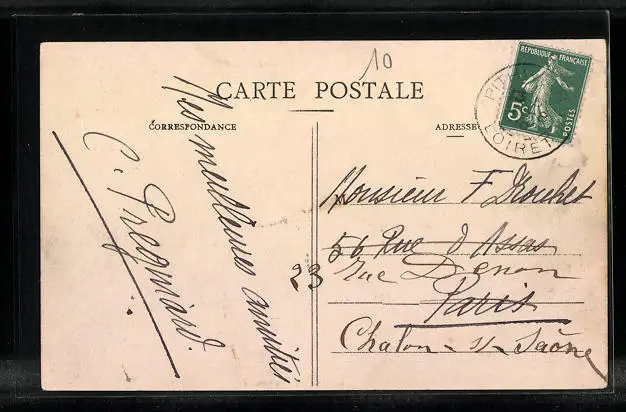 10
CARTE POSTALE
CORRESPONDANCE
ADRESSE
RÉPUBLIQUE FRANÇAISE
5c
POSTES
PIT
LOIRET
Mes meilleures amitiés
C.
Monsieur F Drouhet
56 Rue d'Assas
23 rue Denon
Paris
Chalon-s/-Saône